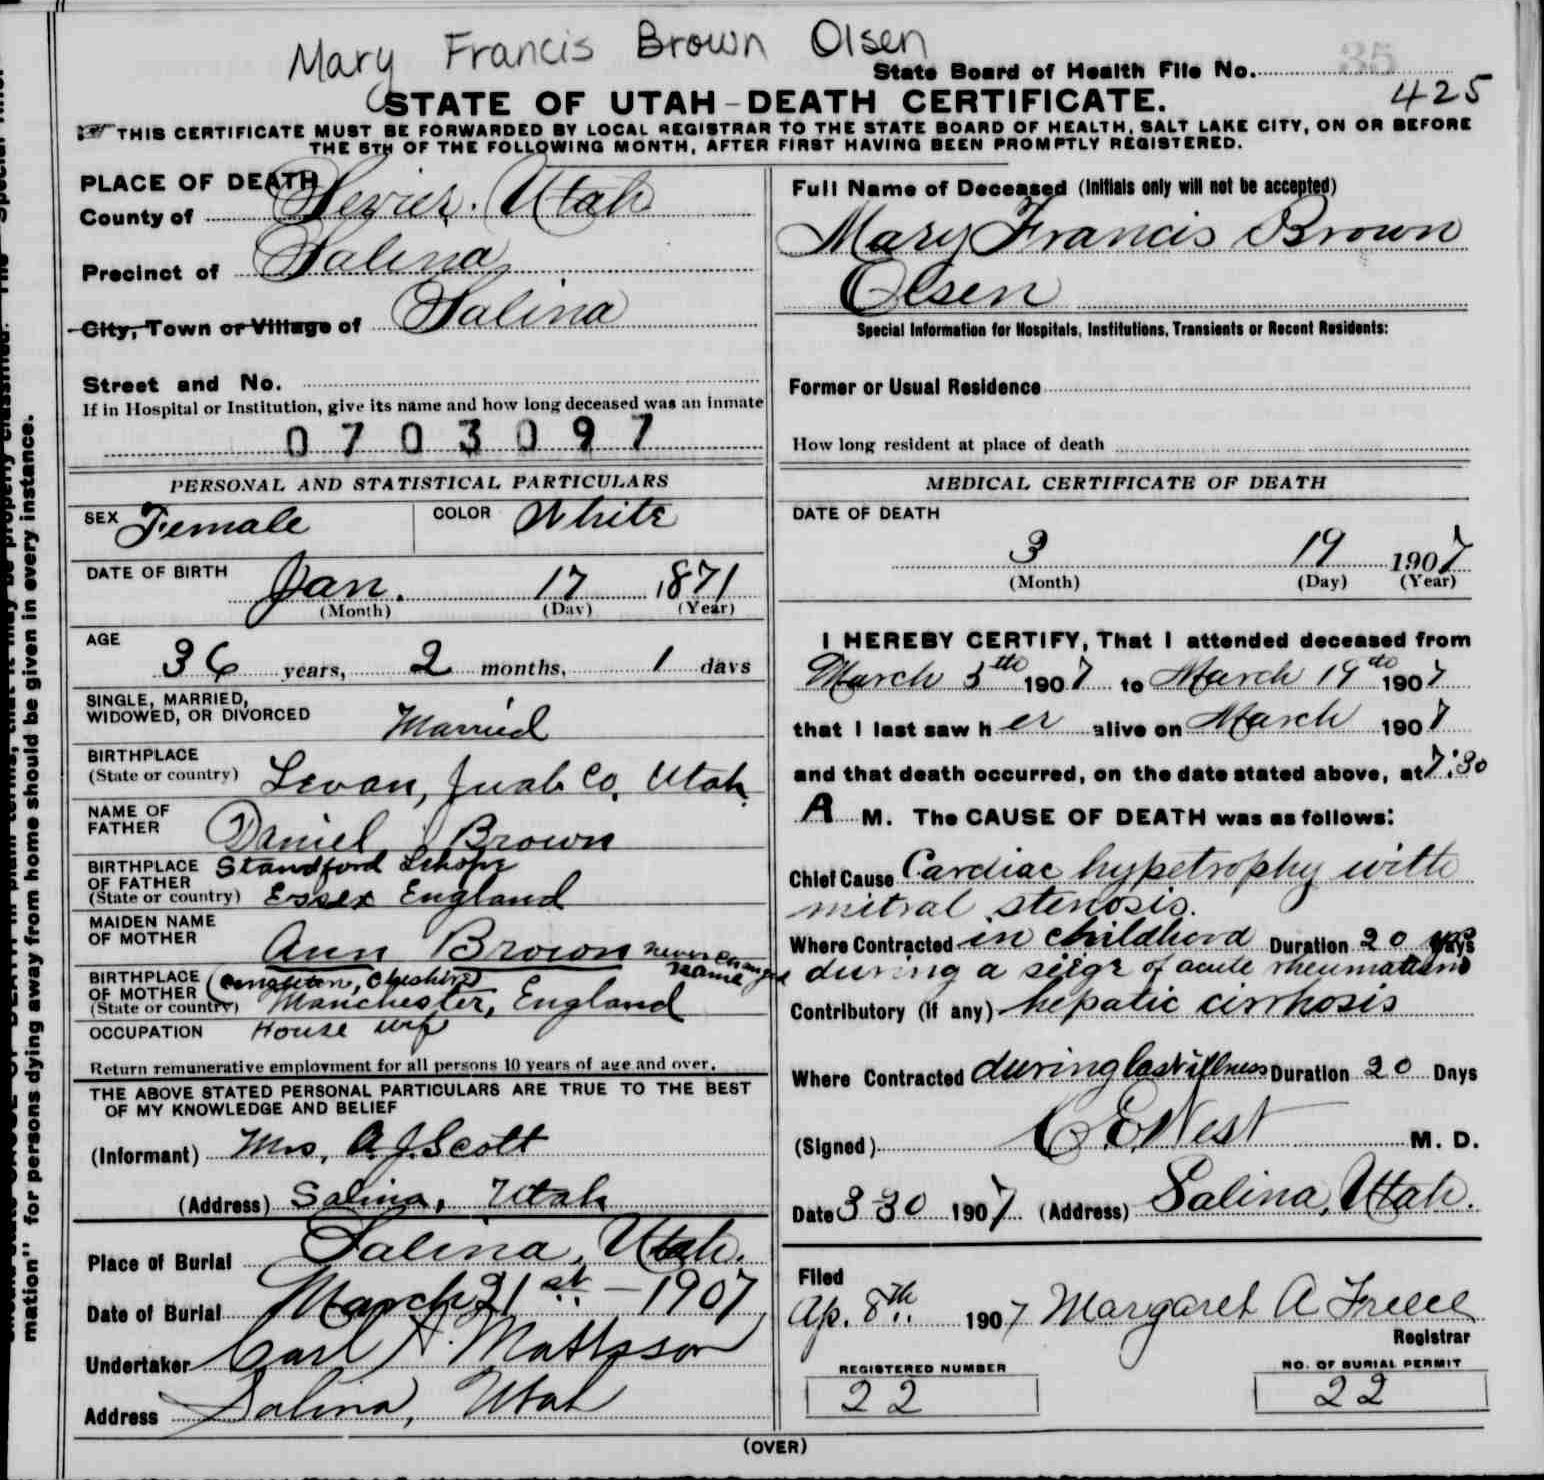 Mary Francis Brown Olsen
State Board of Health File No. 35
425
STATE OF UTAH-DEATH CERTIFICATE.
THIS CERTIFICATE MUST BE FORWARDED BY LOCAL REGISTRAR TO THE STATE BOARD OF HEALTH, SALT LAKE CITY, ON OR BEFORE
THE 5TH OF THE FOLLOWING MONTH, AFTER FIRST HAVING BEEN PROMPTLY REGISTERED.
PLACE OF DEATH
County of Sevier. Utah
Precinct of Salina
City, Town or Village of Salina
Street and No.
If in Hospital or Institution, give its name and how long deceased was an inmate
0703097
PERSONAL AND STATISTICAL PARTICULARS
SEX Female COLOR White
DATE OF BIRTH
Jan. 17 1871
(Month) (Day) (Year)
AGE
36 years, 2 months, 1 days
SINGLE, MARRIED,
WIDOWED, OR DIVORCED Married
BIRTHPLACE
(State or country) Levan, Juab Co, Utah
NAME OF
FATHER Daniel Brown
BIRTHPLACE Standford
OF FATHER
(State or country) Essex England
MAIDEN NAME
OF MOTHER Ann Brown never changed
name
BIRTHPLACE (Congleton, Cheshire)
OF MOTHER
(State or country) Manchester, England
OCCUPATION House wife
Return remunerative employment for all persons 10 years of age and over.
THE ABOVE STATED PERSONAL PARTICULARS ARE TRUE TO THE BEST
OF MY KNOWLEDGE AND BELIEF
(Informant) Mrs, A.J. Scott
(Address) Salina, Utah
Place of Burial Salina, Utah.
Date of Burial March 21st - 1907
Undertaker Carl A. Mattsson
Address Salina, Utah
Full Name of Deceased (Initials only will not be accepted)
Mary Francis Brown
Olsen
Special Information for Hospitals, Institutions, Transients or Recent Residents:
Former or Usual Residence
How long resident at place of death
MEDICAL CERTIFICATE OF DEATH
DATE OF DEATH
3 19 1907
(Month) (Day) (Year)
I HEREBY CERTIFY, That I attended deceased from
March 5th 1907 to March 19th 1907
that I last saw her alive on March 1907
and that death occurred, on the date stated above, at 7:30
A M. The CAUSE OF DEATH was as follows:
Chief Cause Cardiac hypetrophy with
mitral stenosis.
Where Contracted in childhood Duration 20
during a seige of acute rheumatism
Contributory (if any) hepatic cirrhosis
Where Contracted during last illness Duration 20 Days
(Signed) C E West M. D.
Date 3 30 1907 (Address) Salina, Utah.
Filed
Ap. 8th 1907 Margaret A
Registrar
REGISTERED NUMBER
22
NO. OF BURIAL PERMIT
22
(OVER)
mation" for persons dying away from home should be given in every instance.